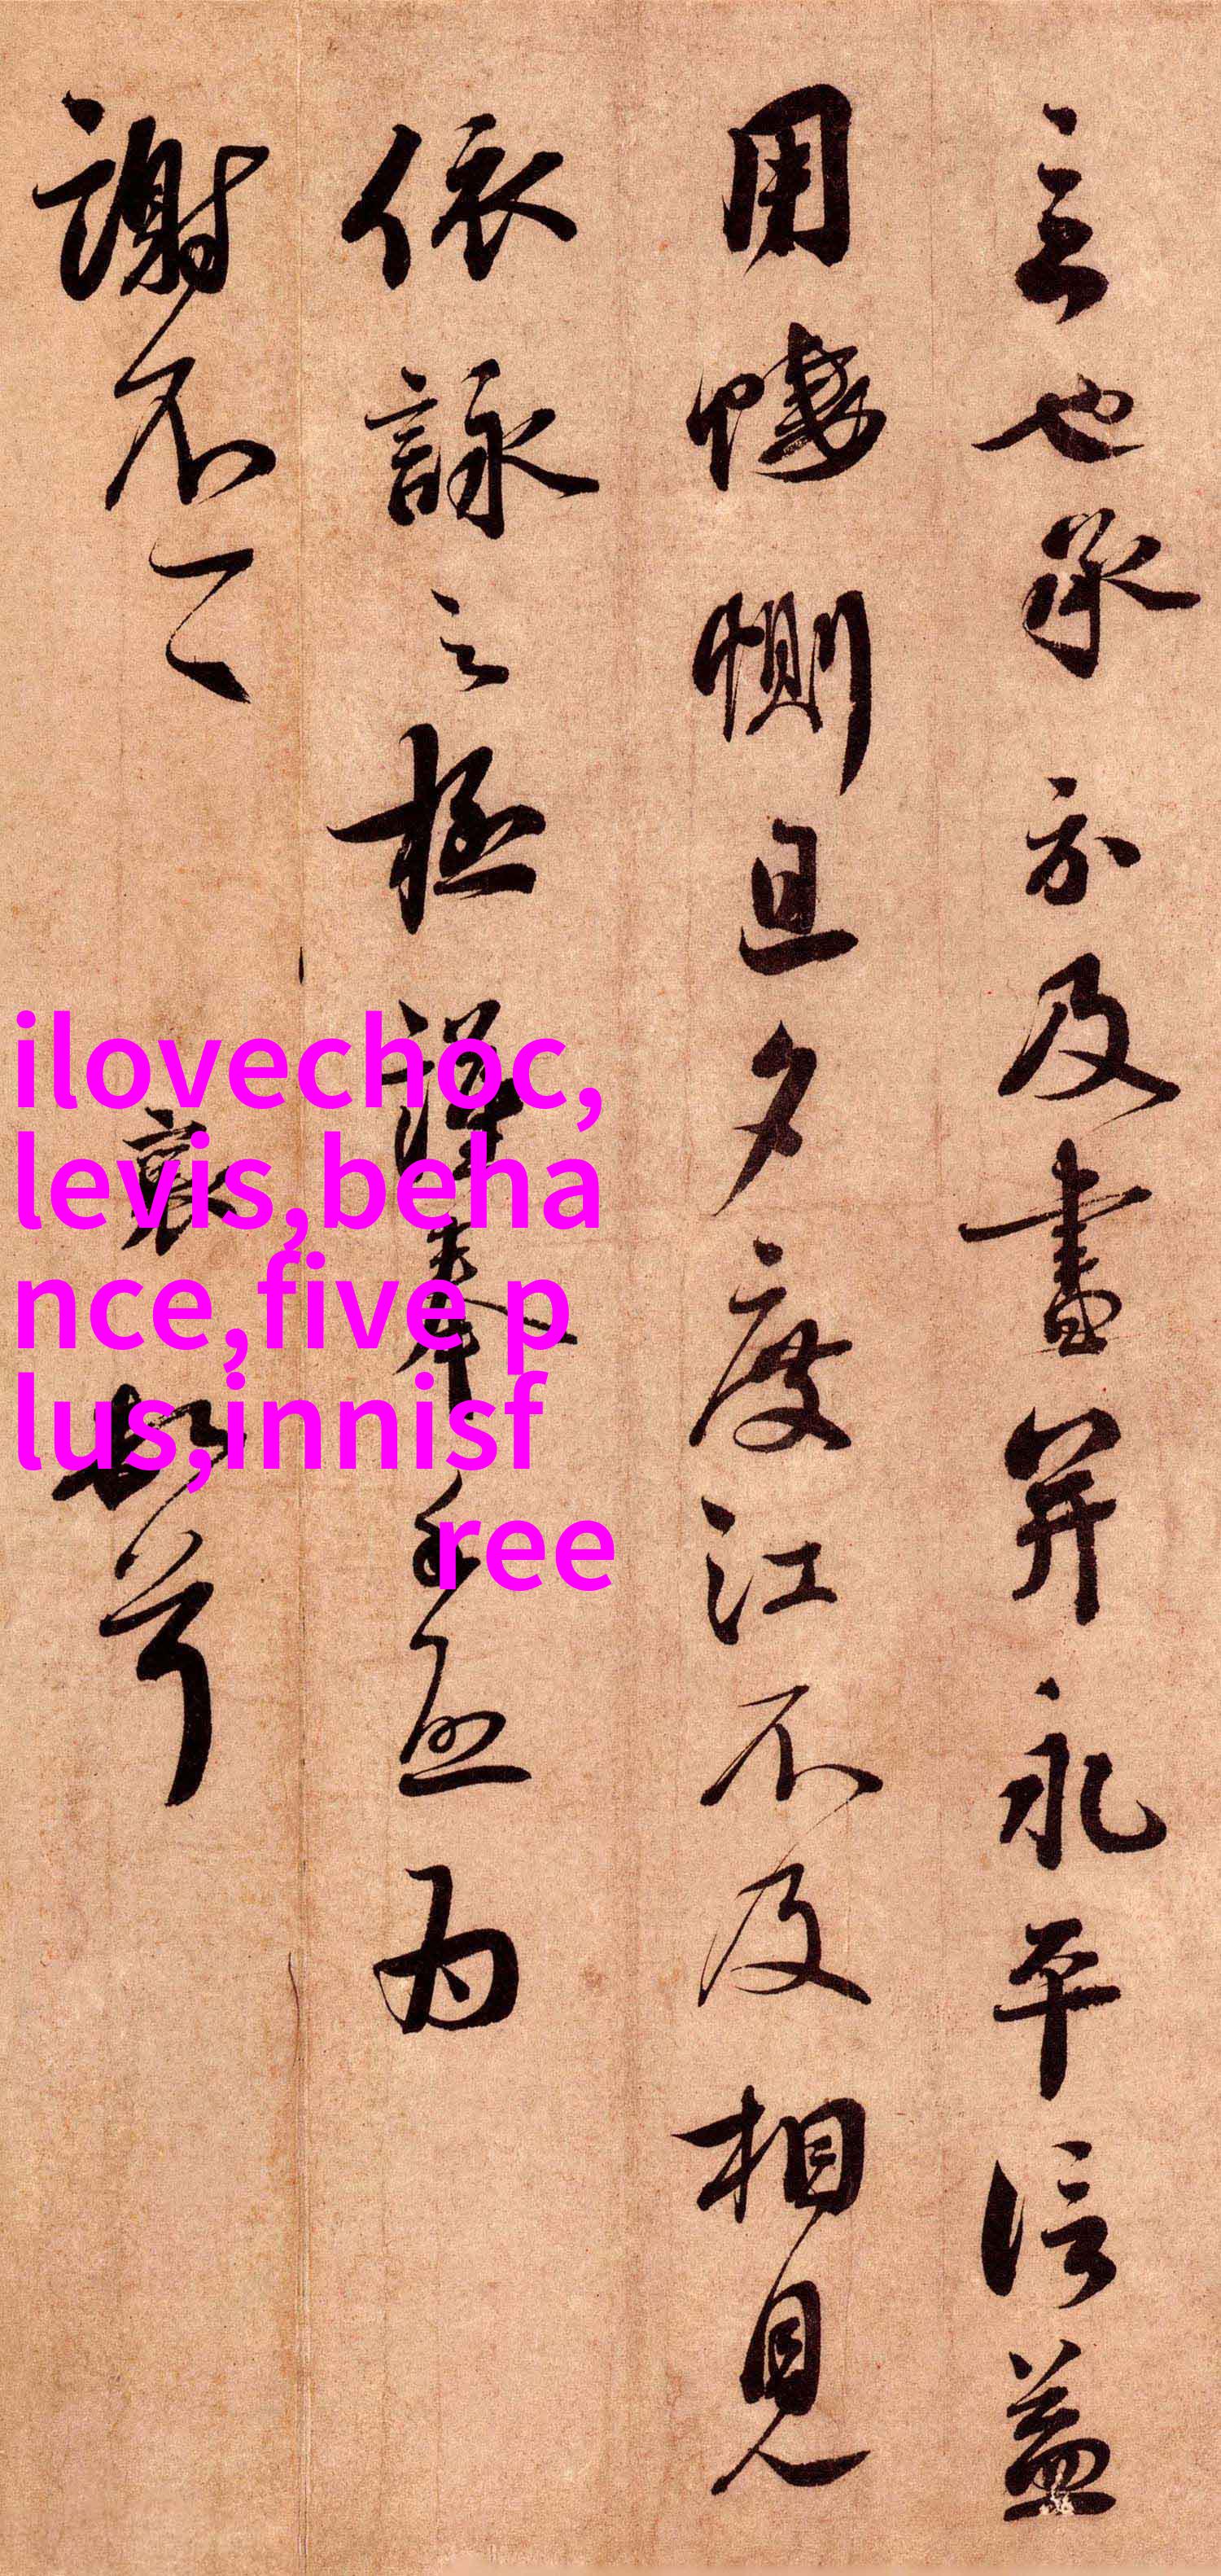 言也承示及書并永平信益
用悽惻旦夕度江不及相見
依詠之極謹奉手啟为
謝不一 襄 頓首
ilovechoc,
levis,beha
nce,five p
lus,innisf
ree